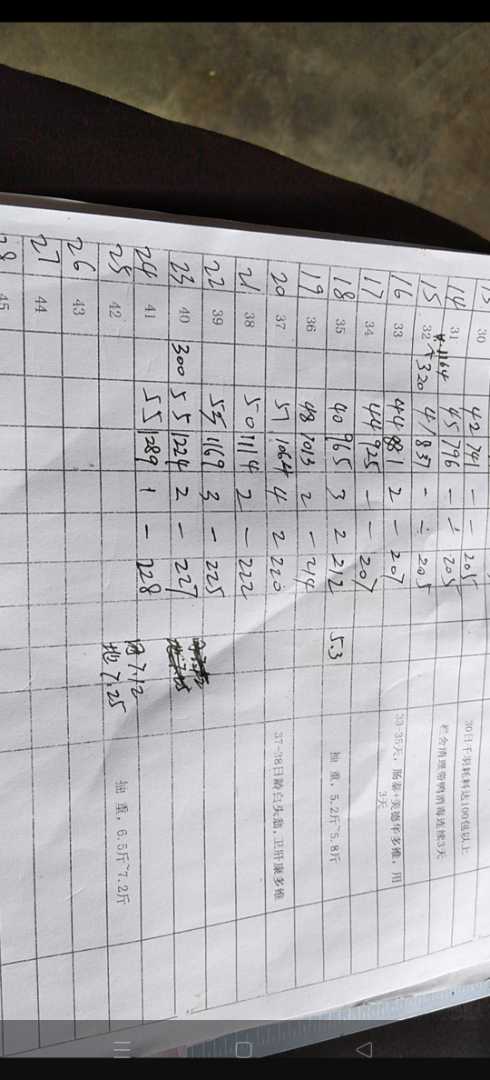 30 42 741 - - 205 30日千羽耗料达100包以上
14 31 45 796 - - 205 栏舍清理带鸭消毒连续3天
15 32 320 41 837 - - 205
16 33 44 881 2 - 207 33-35天，肠泰+美德华多维，用
3天
17 34 44 925 - - 207
18 35 40 965 3 2 212 5.3 抽 重，5.2斤~5.8斤
19 36 48 1013 2 - 214
20 37 51 1064 4 2 220 37-38日龄点头瘟，卫肝康多维
21 38 50 1114 2 - 222
22 39 55 1169 3 - 225
23 40 300 55 1224 2 - 227
24 41 55 1289 1 - 228
25 42 网7.12 抽 重，6.5斤~7.2斤
地7.25
26 43
27 44
28 45